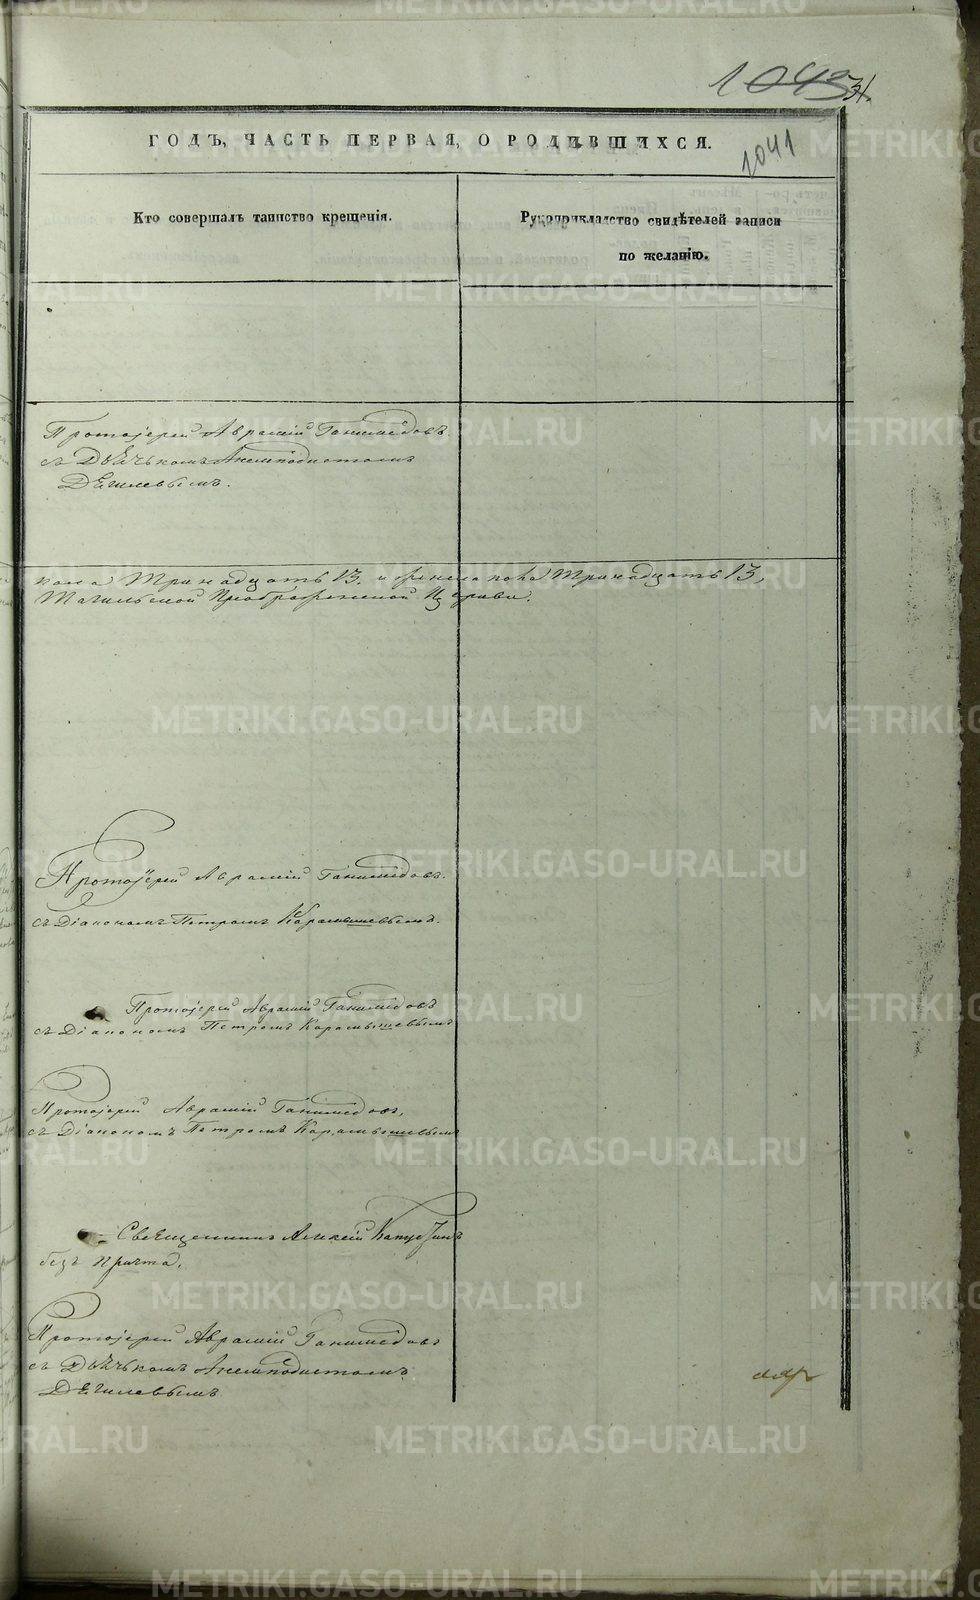 1043 31.
1041
ГОДЪ, ЧАСТЬ ПЕРВАЯ, О РОДИВШИХСЯ.
Кто совершалъ таинство крещенія.
Рукоприкладство свидѣтелей записи
по желанію.
Протоіерей Аврамій Ганимедовъ
съ Дьячкомъ Анемподистомъ
Дягилевымъ.
пола Тринадцать 13. и женска пола Тринадцать 13,
Тагильской Преображенской Церкви.
Протоіерей Аврамій Ганимедовъ.
съ Діакономъ Петромъ Карамышевымъ.
Протоіерей Аврамій Ганимедовъ
съ Діакономъ Петромъ Карамышевымъ
Протоіерей Аврамій Ганимедовъ,
съ Діакономъ Петромъ Карамышевымъ
Священникъ Алексій
безъ Причта.
Протоіерей Аврамій Ганимедовъ
съ Дьячкомъ Анемподистомъ
Дягилевымъ
METRIKI.GASO-URAL.RU